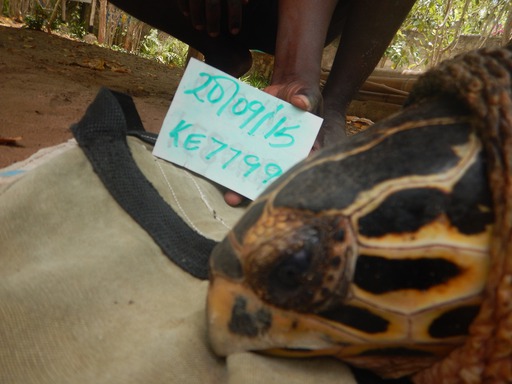 20/09/15
KE7799